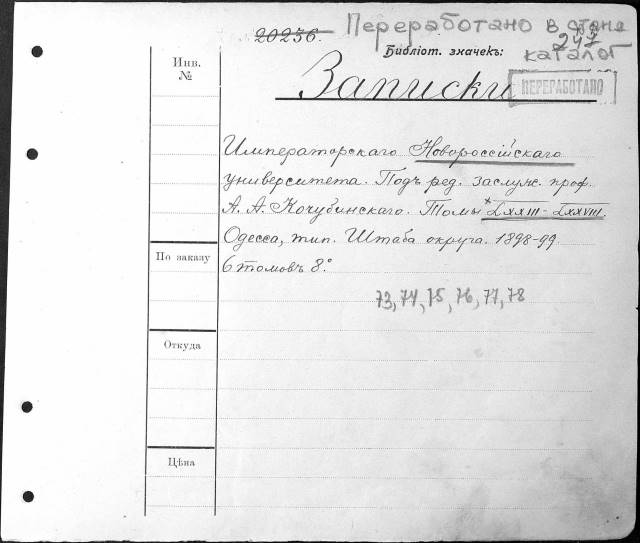 20236. Переработано в стана
247
Библіот. значекъ: каталог
Инв.
№
Записки
ПЕРЕРАБОТАНО
Императорскаго Новороссійскаго
университета. Подъ ред. заслуж. проф.
А. А. Кочубинскаго. Томы LXXIII - LXXVIII.
Одесса, тип. Штаба округа. 1898-99.
По заказу
6 томовъ 8.º
73, 74, 75, 76, 77, 78
Откуда
Цѣна